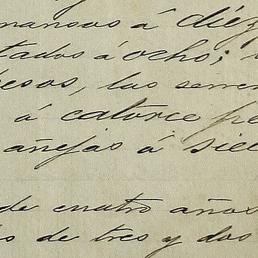 mansos á diez
tados á ocho;
pesos, las
á catorce pe
añejas á sie
de cuatro años
s de tres y dos